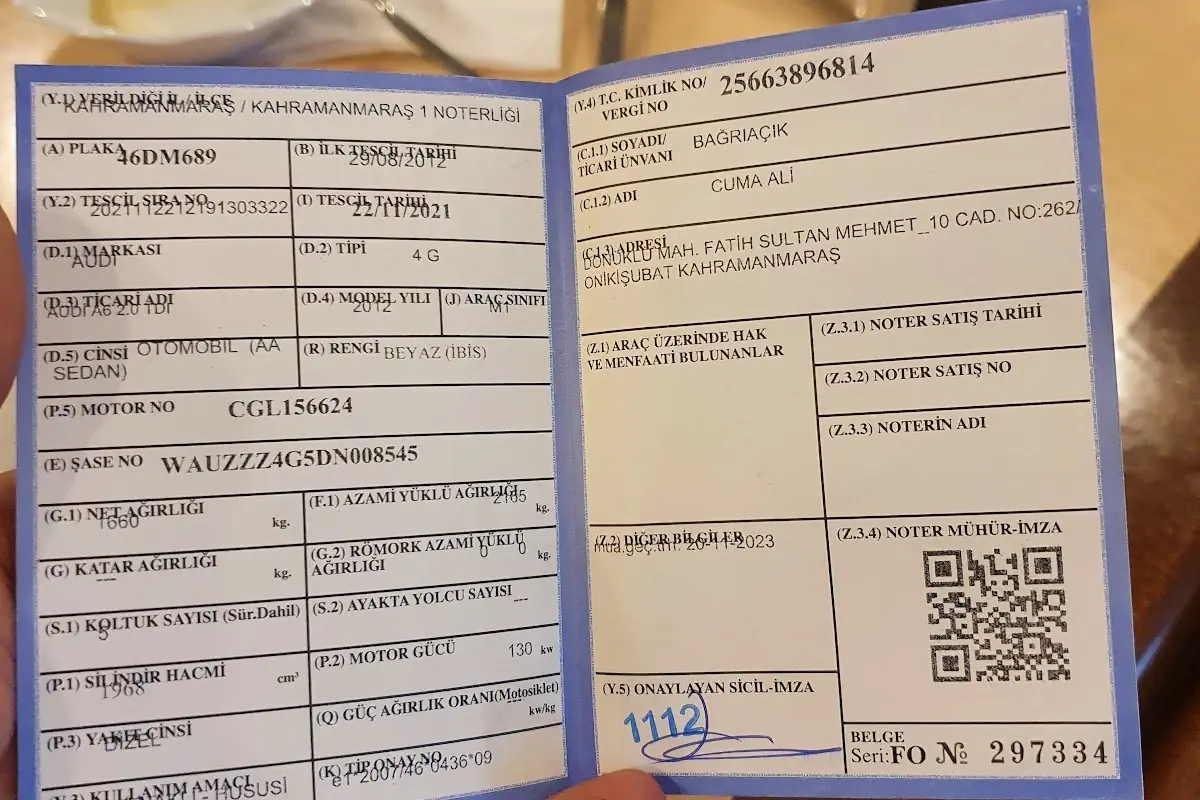 (Y.1) VERİLDİĞİ İL / İLÇE
KAHRAMANMARAŞ / KAHRAMANMARAŞ 1 NOTERLİĞİ
(A) PLAKA 46DM689
(B) İLK TESCİL TARİHİ 29/08/2012
(Y.2) TESCİL SIRA NO 2021112212191303322
(I) TESCİL TARİHİ 22/11/2021
(D.1) MARKASI
AUDI
(D.2) TİPİ 4 G
(D.3) TİCARİ ADI
AUDI A6 2.0 TDI
(D.4) MODEL YILI
2012
(J) ARAÇ SINIFI
M1
(D.5) CİNSİ OTOMOBİL (AA
SEDAN)
(R) RENGİ BEYAZ (İBİS)
(P.5) MOTOR NO CGL156624
(E) ŞASE NO WAUZZZ4G5DN008545
(G.1) NET AĞIRLIĞI
1660 kg.
(F.1) AZAMİ YÜKLÜ AĞIRLIĞI
2165 kg.
(G) KATAR AĞIRLIĞI
--- kg.
(G.2) RÖMORK AZAMİ YÜKLÜ
AĞIRLIĞI 0 0 kg.
(S.1) KOLTUK SAYISI (Sür.Dahil)
5
(S.2) AYAKTA YOLCU SAYISI ---
(P.1) SİLİNDİR HACMİ
1968 cm³
(P.2) MOTOR GÜCÜ 130 kw
(P.3) YAKIT CİNSİ
DİZEL
(Q) GÜÇ AĞIRLIK ORANI(Motosiklet)
--- kw/kg
(Y.3) KULLANIM AMACI
- HUSUSİ
(K) TİP ONAY NO
e1*2007/46*0436*09
(Y.4) T.C. KİMLİK NO/
VERGİ NO 25663896814
(C.1.1) SOYADI/
TİCARİ ÜNVANI BAĞRIAÇIK
(C.1.2) ADI CUMA ALİ
(C.1.3) ADRESİ
DÖNÜKLÜ MAH. FATİH SULTAN MEHMET_10 CAD. NO:262/
ONİKİŞUBAT KAHRAMANMARAŞ
(Z.1) ARAÇ ÜZERİNDE HAK
VE MENFAATİ BULUNANLAR
(Z.3.1) NOTER SATIŞ TARİHİ
(Z.3.2) NOTER SATIŞ NO
(Z.3.3) NOTERİN ADI
(Z.2) DİĞER BİLGİLER
mua.geç.trh: 20-11-2023
(Z.3.4) NOTER MÜHÜR-İMZA
(Y.5) ONAYLAYAN SİCİL-İMZA
1112
BELGE
Seri:FO № 297334